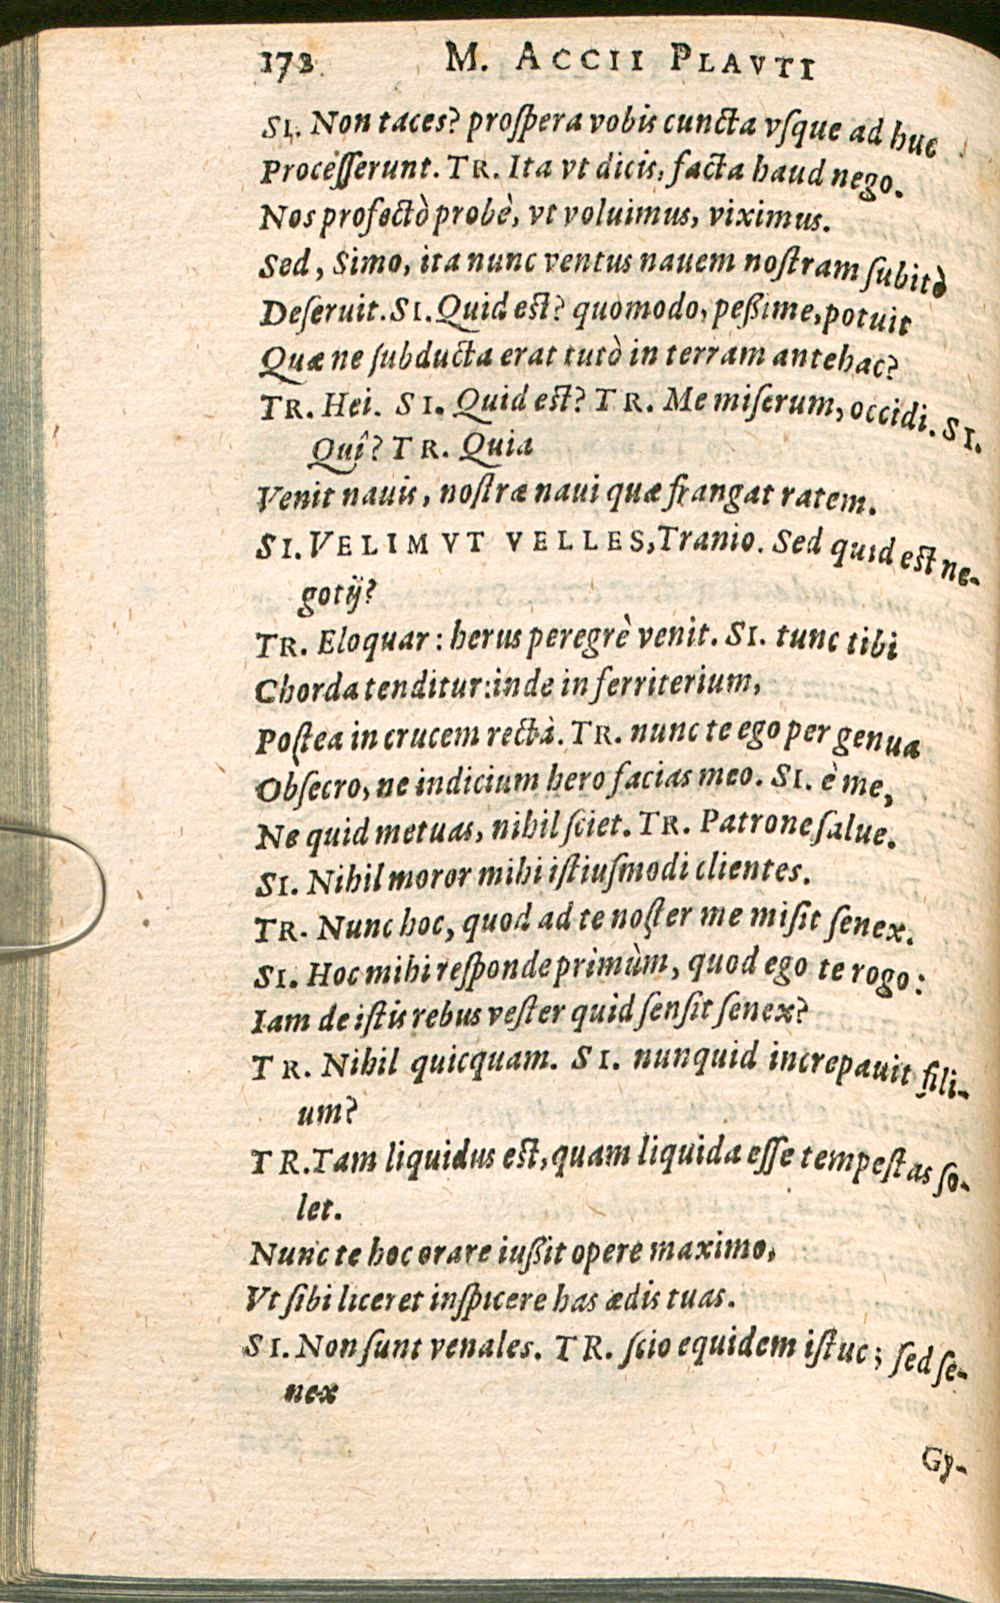 172 M. ACCII PLAVTI
SI. Non taces? proſpera vobis cuncta vſque ad huc
Proceſſerunt. TR. Ita vt dicis, facta haud nego.
Nos profectò probè, vt voluimus, viximus.
Sed, Simo, ita nunc ventus nauem noſtram ſubitò
Deſeruit. SI. Quid eſt? quomodo, peßime, potuit
Quæ ne ſubducta erat tutò in terram antehac?
TR. Hei. SI. Quid eſt? TR. Me miſerum, occidi. SI.
Quî? TR. Quia
Venit nauis, noſtræ naui quæ frangat ratem.
SI. VELIM VT VELLES, Tranio. Sed quid eſt ne-
gotij?
TR. Eloquar: herus peregrè venit. SI. tunc tibi
Chorda tenditur: inde in ferriterium,
Poſtea in crucem rectà. TR. nunc te ego per genua
Obſecro, ne indicium hero facias meo. SI. è me,
Ne quid metuas, nihil ſciet. TR. Patrone ſalue.
SI. Nihil moror mihi iſtiuſmodi clientes.
TR. Nunc hoc, quod ad te noſter me miſit ſenex.
SI. Hoc mihi reſponde primùm, quod ego te rogo:
Iam de iſtis rebus veſter quid ſenſit ſenex?
TR. Nihil quicquam. SI. nunquid increpauit fili-
um?
TR. Tam liquidus eſt, quam liquida eſſe tempeſtas ſo-
let.
Nunc te hoc orare iußit opere maximo,
Vt ſibi liceret inſpicere has ædis tuas.
SI. Non ſunt venales. TR. ſcio equidem iſtuc; ſed ſe-
nex
Gy-